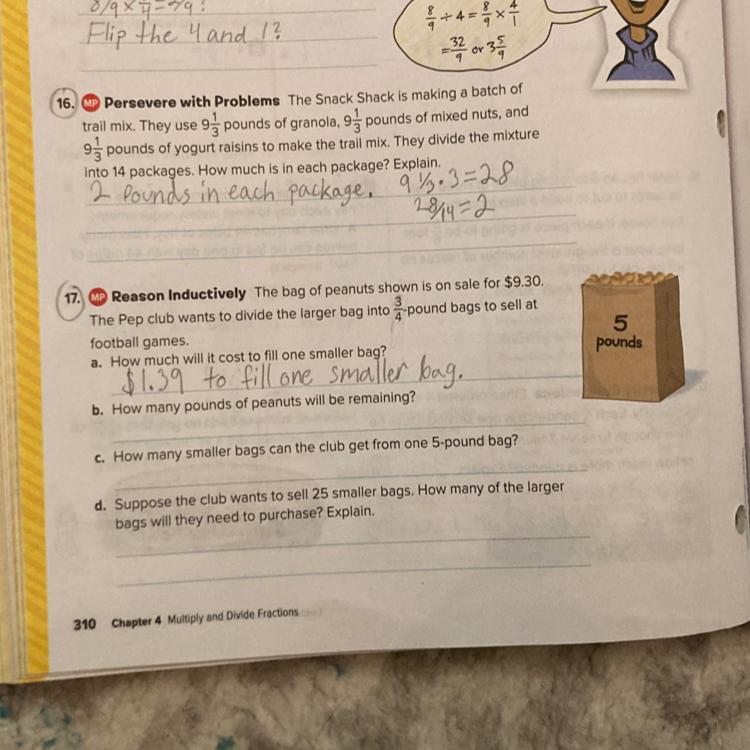 8/9 × 1/4 = 2/9?
Flip the 4 and 1?
8/9 ÷ 4 = 8/9 × 4/1
= 32/9 or 3 5/9
16. MP Persevere with Problems The Snack Shack is making a batch of
trail mix. They use 9 1/3 pounds of granola, 9 1/3 pounds of mixed nuts, and
9 1/3 pounds of yogurt raisins to make the trail mix. They divide the mixture
into 14 packages. How much is in each package? Explain.
2 Pounds in each package. 9 1/3 · 3 = 28
28/14 = 2
17. MP Reason Inductively The bag of peanuts shown is on sale for $9.30.
The Pep club wants to divide the larger bag into 3/4-pound bags to sell at
football games.
5
pounds
a. How much will it cost to fill one smaller bag?
$1.39 to fill one smaller bag.
b. How many pounds of peanuts will be remaining?
c. How many smaller bags can the club get from one 5-pound bag?
d. Suppose the club wants to sell 25 smaller bags. How many of the larger
bags will they need to purchase? Explain.
310 Chapter 4 Multiply and Divide Fractions